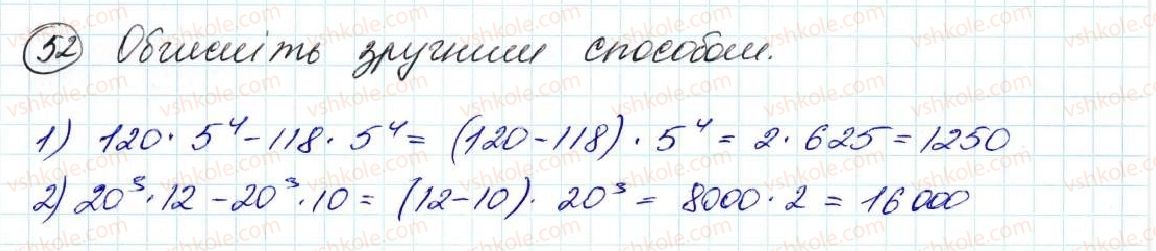 52 Обчисліть зручним способом.
1) 120 · 5⁴ - 118 · 5⁴ = (120 - 118) · 5⁴ = 2 · 625 = 1250
2) 20³ · 12 - 20³ · 10 = (12 - 10) · 20³ = 8000 · 2 = 16 000